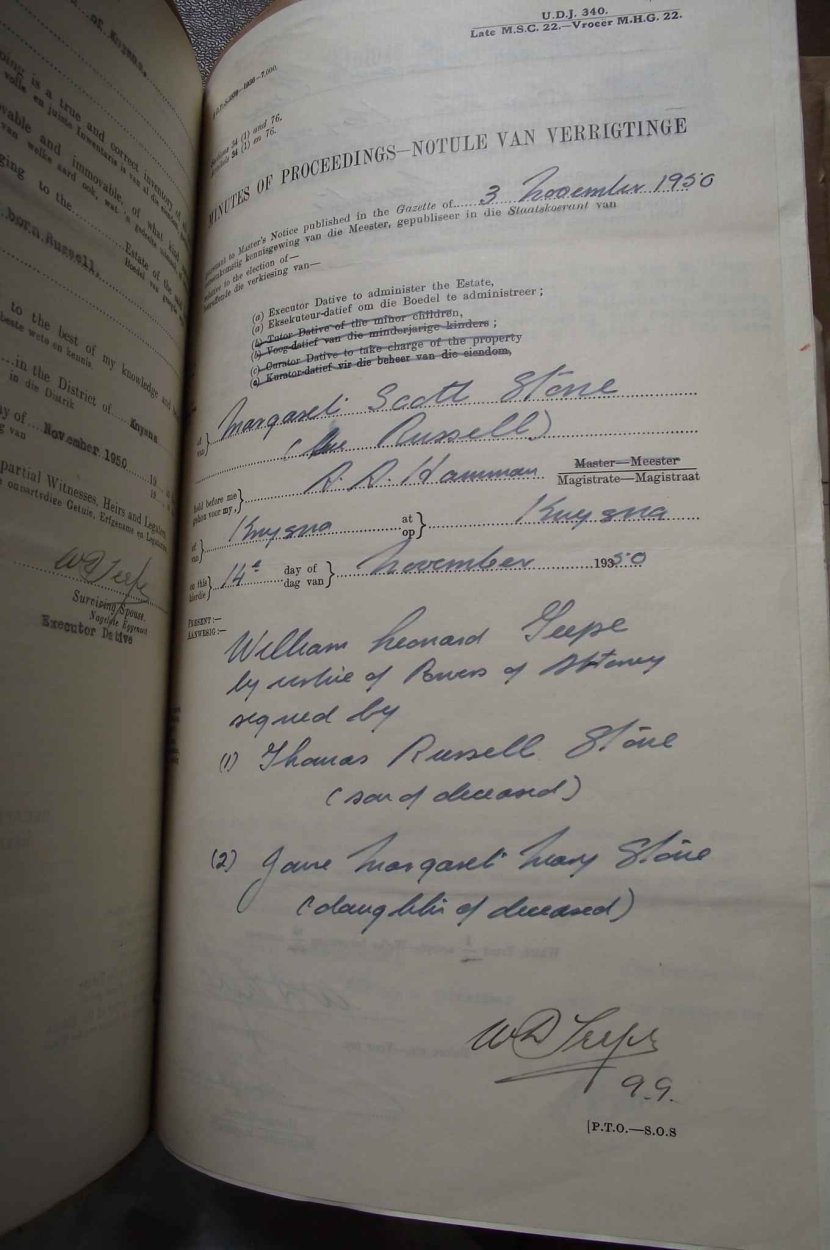 of Knysna,
ping is a true and correct inventory of all
volle en juiste Inventaris is van al die
movable and immovable, of what kind
van welke aard ook, wat
ging to the
Estate of the said
Boedel van gesegde
born Russell,
to the best of my knowledge and
beste wete en kennis.
in the District of Knysna
in die Distrik
day of November 1950 19
van 19
Impartial Witnesses, Heirs and Legatees
onpartydige Getuie, Erfgename en Legatarisse
Surviving Spouse.
Nagelate Eggenoot
Executor Dative
U.D.J. 340.
Late M.S.C. 22.—Vroeer M.H.G. 22.
34 (1) and 76.
34 (1) en 76.
MINUTES OF PROCEEDINGS—NOTULE VAN VERRIGTINGE
Pursuant to Master's Notice published in the Gazette of 3 November 1950
ooreenkomstig kennisgewing van die Meester, gepubliseer in die Staatskoerant van
relative to the election of—
betreffende die verkiesing van—
(a) Executor Dative to administer the Estate,
(a) Eksekuteur-datief om die Boedel te administreer ;
(b) Tutor Dative of the minor children,
(b) Voog-datief van die minderjarige kinders ;
(c) Curator Dative to take charge of the property
(c) Kurator-datief vir die beheer van die eiendom,
of
van } Margaret Scott Stone
(née Russell)
held before me
gehou voor my, } Hamman Master—Meester
Magistrate—Magistraat
of
van } Knysna at
op } Knysna
on this
hierdie } 14th day of
dag van } November 19350
PRESENT :—
AANWESIG :—
William Leonard
by virtue of Powers of Attorney
signed by
(1) Thomas Russell Stone
(son of deceased)
(2) Jane Margaret Mary Stone
(daughter of deceased)
q.q.
[P.T.O.—S.O.S